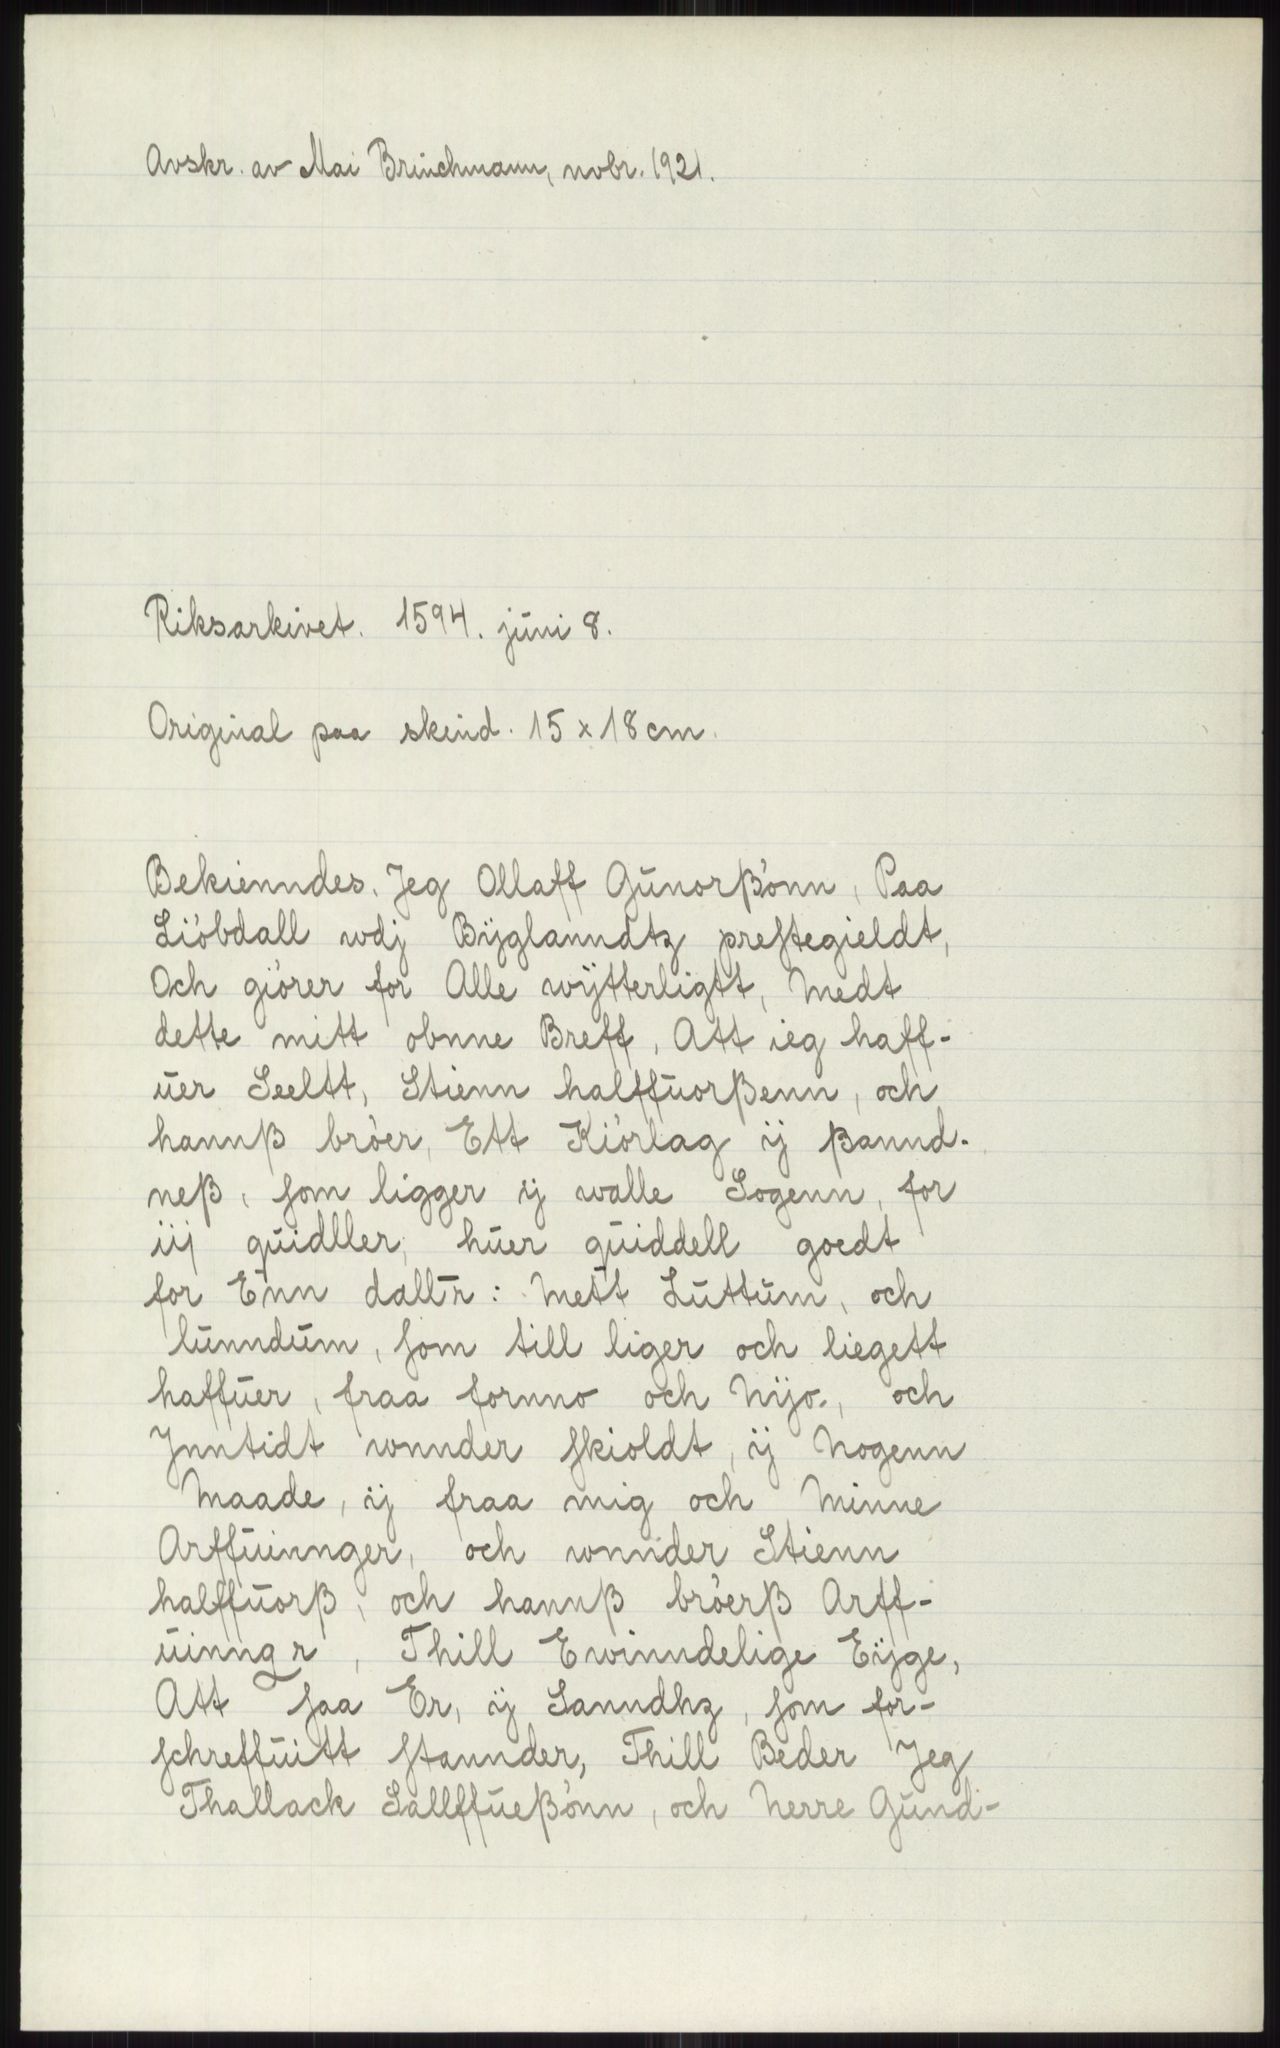 Avskr. av Mai Brinchmann, nvbr. 1921.
Riksarkivet. 1594. juni 8.
Original paa skind. 15 x 18 cm.
Bekienndes. Jeg Ollaff Gunorßönn, Paa
Liöbdall wdj Bÿglanndtz prestegieldt,
Och giörer for Alle wÿtterligtt, Medt
dette mitt obnne Breff, Att ieg haff-
uer Seeltt, Stienn halffuorßenn, och
hannß bröer, Ett Kiörlag ij ßannd-
neß, som ligger ij walle Sogenn, for
iij quidller, huer quiddell goedt
for Enn dallr: Mett Luttum, och
lunndum, som till liger och liegett
haffuer, fraa fornno och Nÿo., och
Jnntidt wnnder skioldt, ij Nogenn
Maade, ij fraa mig och Minne
Arffuinnger, och wnnder Stienn
halffuorß, och hannß bröerß Arff-
uinngr, Thill Ewinndelige Eÿge,
Att saa Er, ij Sanndhz, som for-
schreffuitt stannder, Thill Beder Jeg
Thallack Sallffueßönn, och Herre Gund-